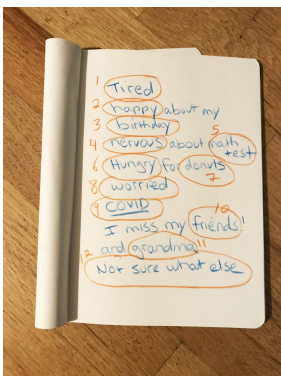 1 Tired
2 happy about my
3 birthday 5
4 nervous about math
test
6 Hungry for donuts
7
8 worried
9 COVID
10
I miss my friends!
12 and grandma 11
Not sure what else